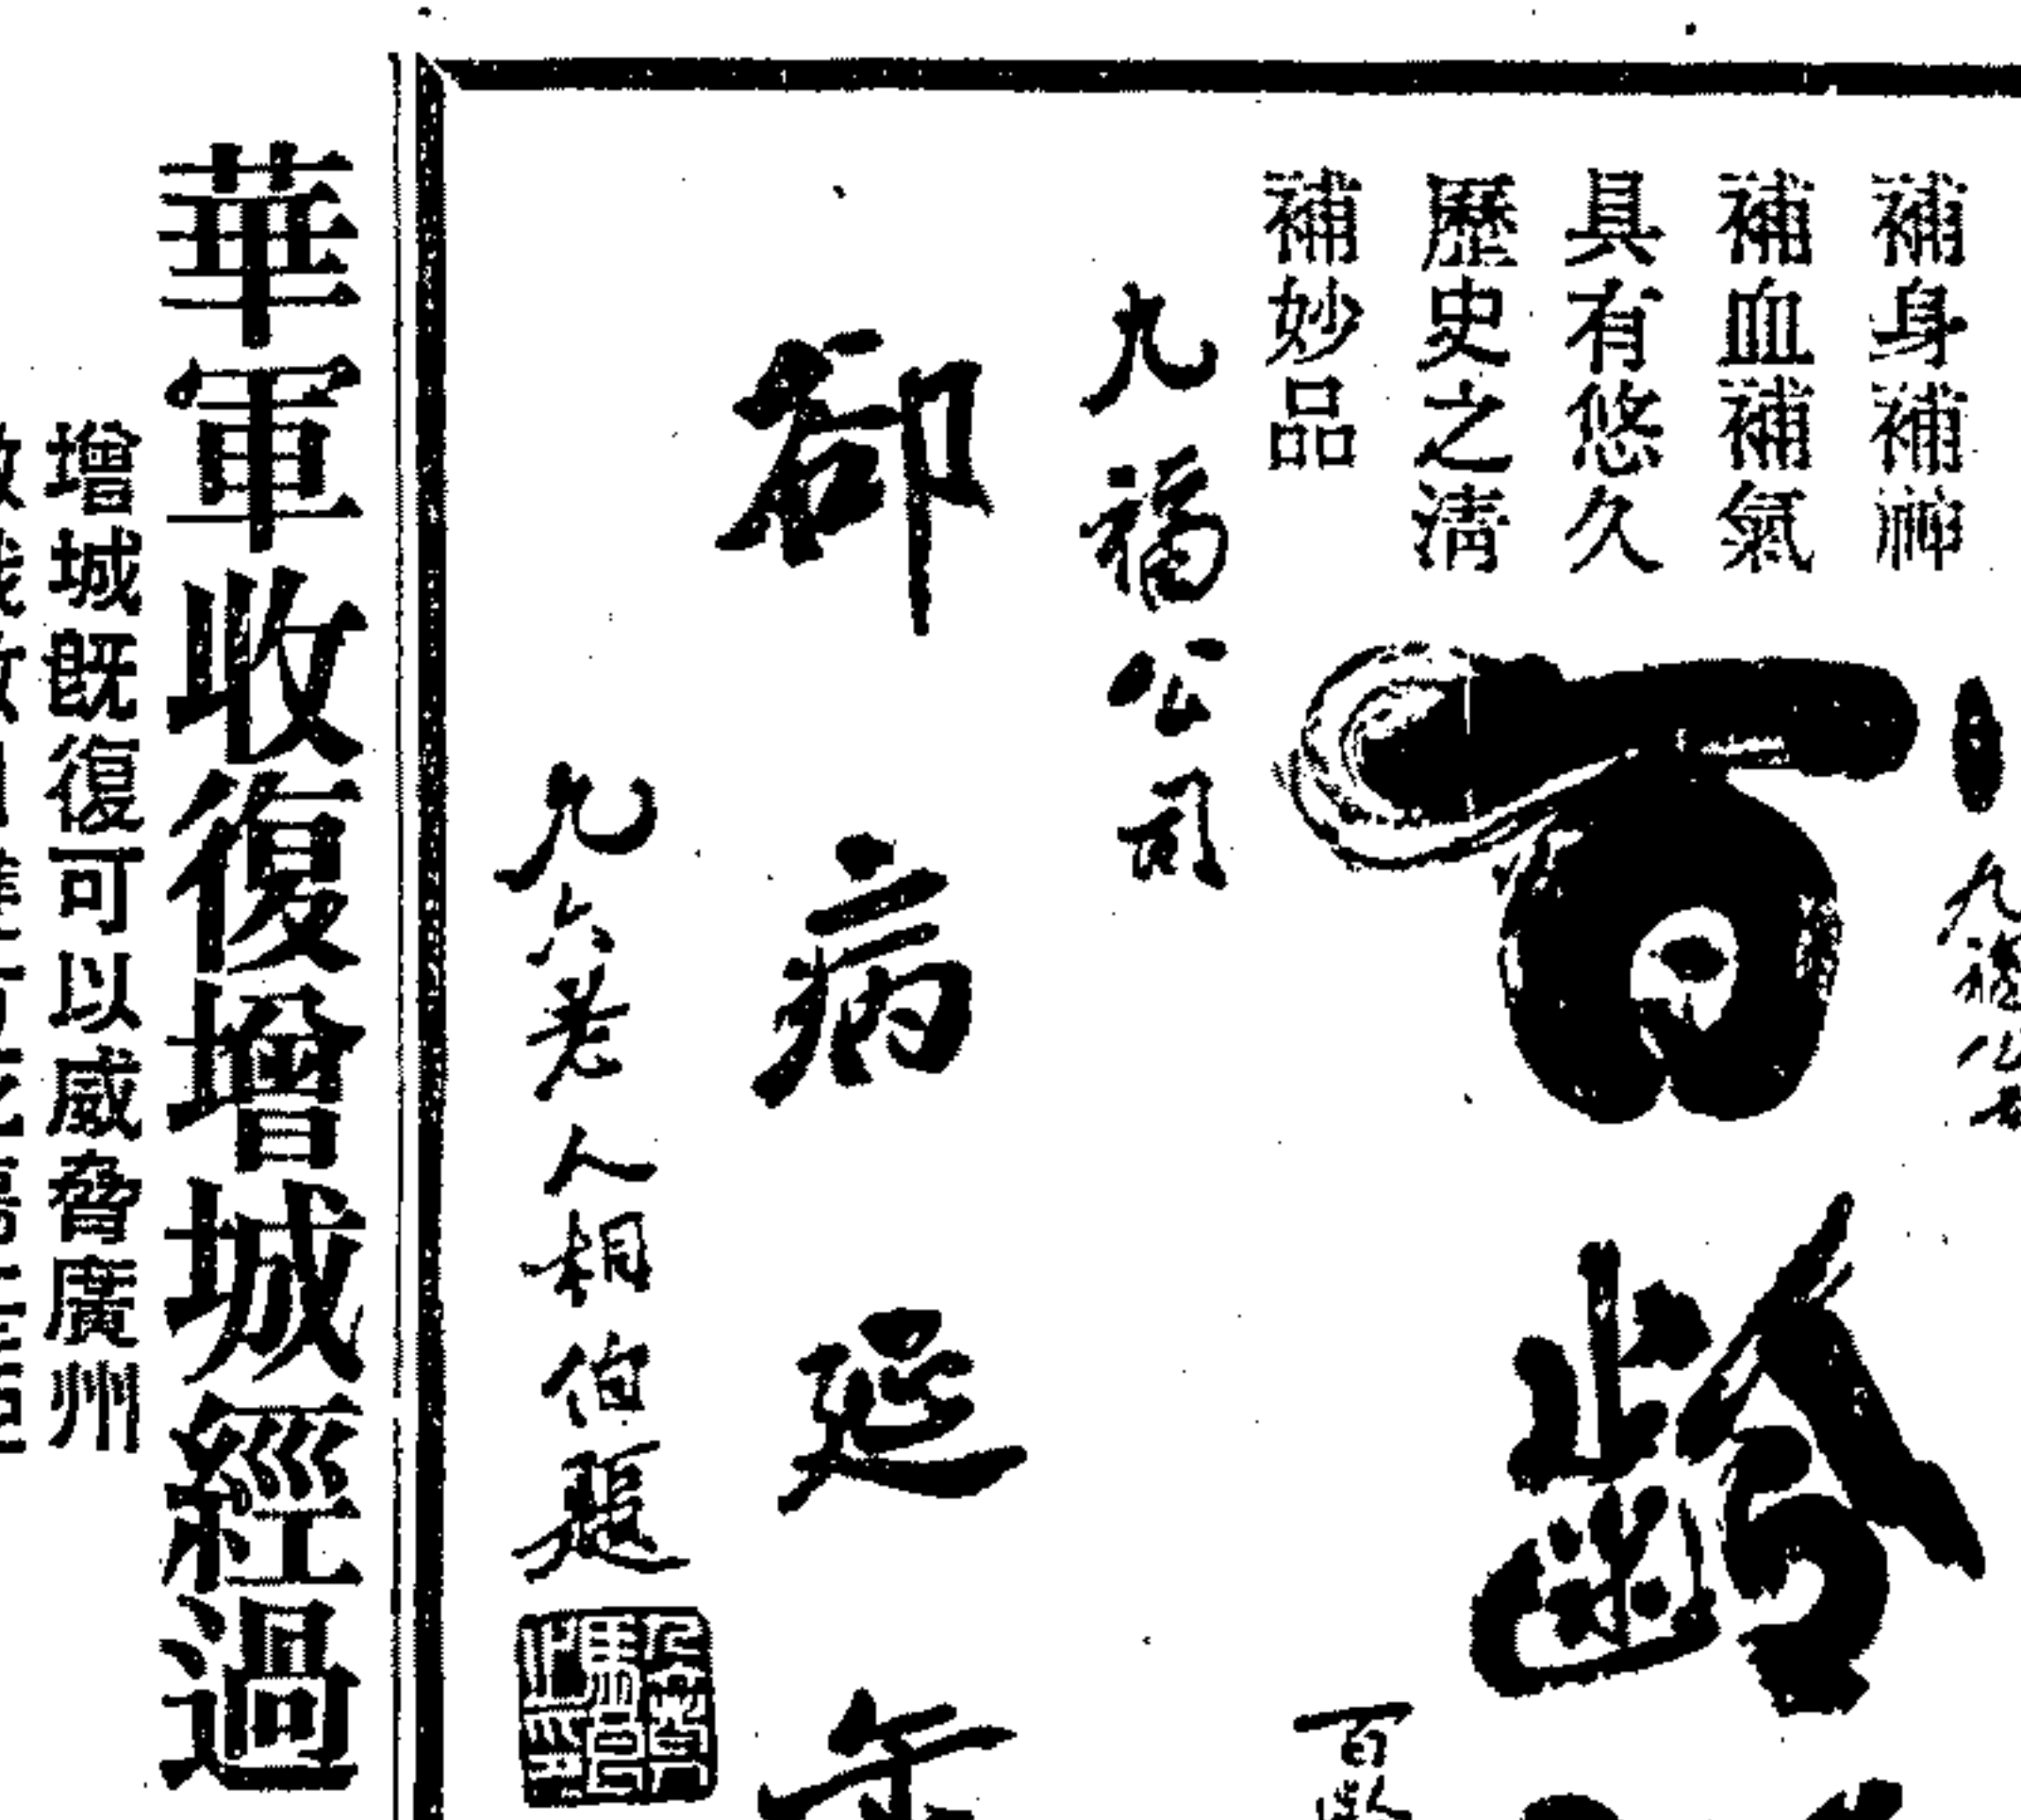 補身補神
補血補氣
具有悠久
歷史之淸
補妙品
百齡
九福公司
却病延年
九六老人相伯題
華軍收復增城經過
增城旣復可以威脅廣州